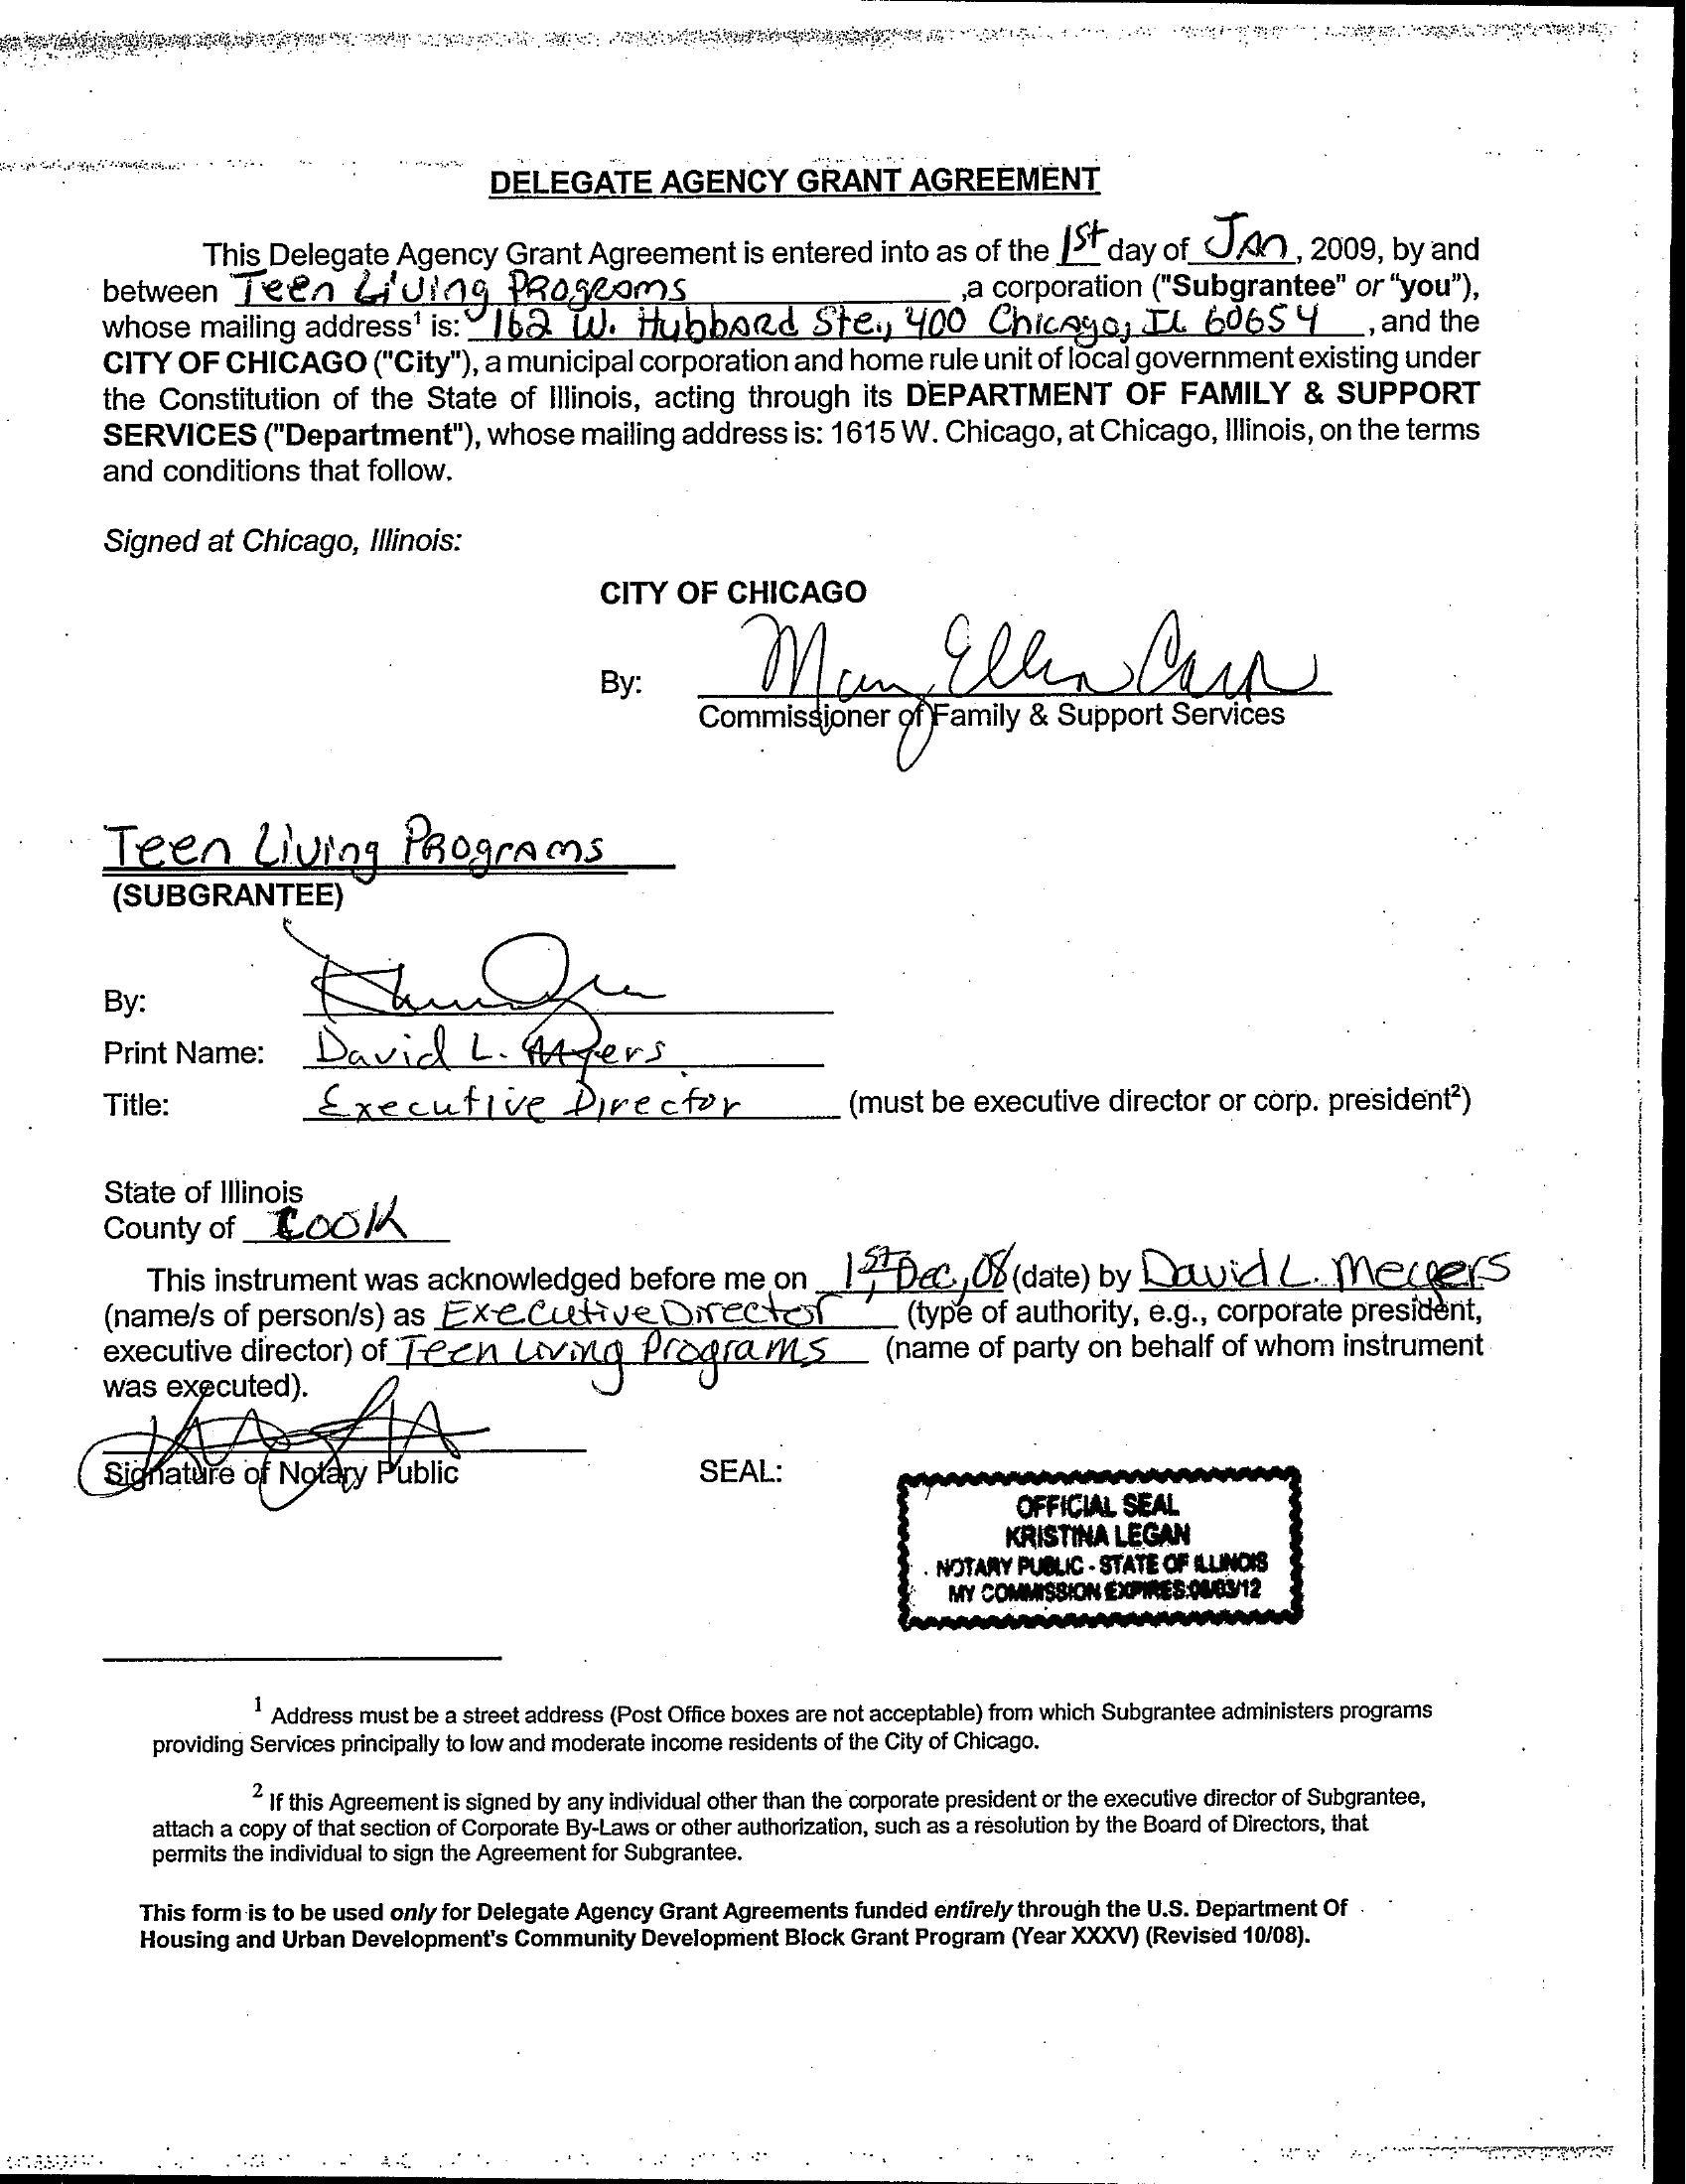 DELEGATE AGENCY GRANT AGREEMENT
This Delegate Agency Grant Agreement is entered into as of the 1st day of JAN, 2009, by and
between Teen Living Programs ,a corporation ("Subgrantee" or "you"),
whose mailing address¹ is: 162 W. Hubbard Ste., 400 Chicago, IL 60654, and the
CITY OF CHICAGO ("City"), a municipal corporation and home rule unit of local government existing under
the Constitution of the State of Illinois, acting through its DEPARTMENT OF FAMILY & SUPPORT
SERVICES ("Department"), whose mailing address is: 1615 W. Chicago, at Chicago, Illinois, on the terms
and conditions that follow.
Signed at Chicago, Illinois:
CITY OF CHICAGO
By: Mary Ellen
Commissioner of Family & Support Services
Teen Living Programs
(SUBGRANTEE)
By:
Print Name: David L. Myers
Title: Executive Director (must be executive director or corp. president²)
State of Illinois
County of Cook
This instrument was acknowledged before me on 1st, Dec, 08 (date) by David L. Meyers
(name/s of person/s) as Executive Director (type of authority, e.g., corporate president,
executive director) of Teen Living Programs (name of party on behalf of whom instrument
was executed).
Signature of Notary Public SEAL:
OFFICIAL SEAL
KRISTINA LEGAN
NOTARY PUBLIC - STATE OF ILLINOIS
MY COMMISSION EXPIRES:
¹ Address must be a street address (Post Office boxes are not acceptable) from which Subgrantee administers programs
providing Services principally to low and moderate income residents of the City of Chicago.
² If this Agreement is signed by any individual other than the corporate president or the executive director of Subgrantee,
attach a copy of that section of Corporate By-Laws or other authorization, such as a resolution by the Board of Directors, that
permits the individual to sign the Agreement for Subgrantee.
This form is to be used only for Delegate Agency Grant Agreements funded entirely through the U.S. Department Of
Housing and Urban Development's Community Development Block Grant Program (Year XXXV) (Revised 10/08).